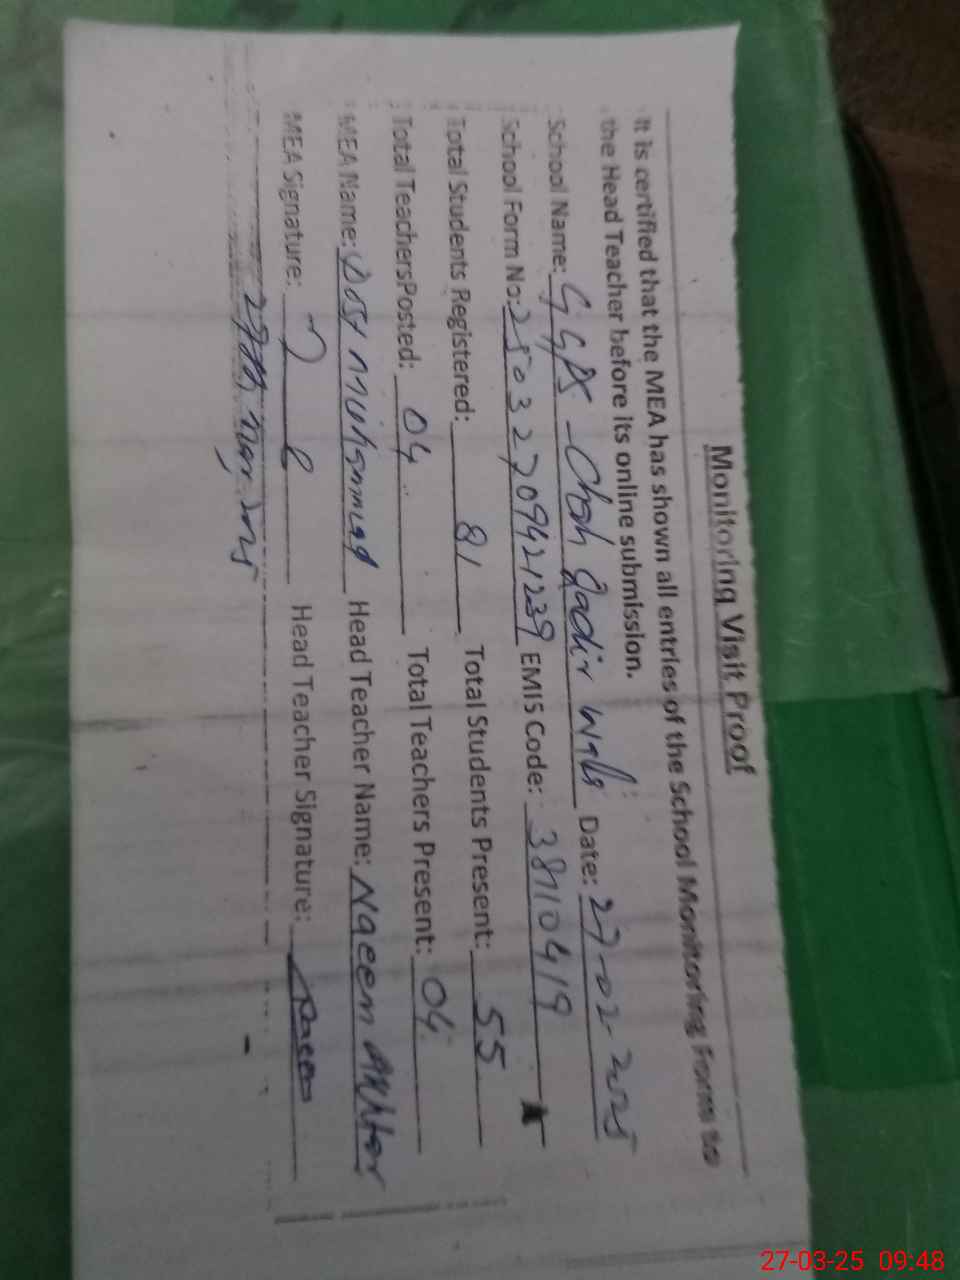 Monitoring Visit Proof
It is certified that the MEA has shown all entries of the School Monitoring Forms to
the Head Teacher before its online submission.
School Name: GGPS - Choh Qadir Wala Date: 27-02-2025
School Form No: 25032709421239 EMIS Code: 38110419
Total Students Registered: 81 Total Students Present: 55
Total TeachersPosted: 04 Total Teachers Present: 04
MEA Name: Dost Muhammad Head Teacher Name: Naeem Akhtar
MEA Signature: Head Teacher Signature:
27th Mar, 2025
27-03-25 09:48